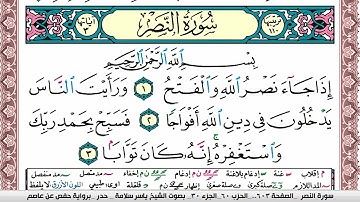 سُورَةُ النَّصْرِ
بِسْمِ اللَّهِ الرَّحْمَٰنِ الرَّحِيمِ
إِذَا جَآءَ نَصْرُ اللَّهِ وَالْفَتْحُ ١ وَرَأَيْتَ النَّاسَ
يَدْخُلُونَ فِي دِينِ اللَّهِ أَفْوَاجًا ٢ فَسَبِّحْ بِحَمْدِ رَبِّكَ
وَاسْتَغْفِرْهُ إِنَّهُۥ كَانَ تَوَّابًا ٣
سورة النصر .. الصفحة ٦٠٣ .. الحزب ٦٠ .. الجزء ٣٠ .. بصوت الشيخ ياسر سلامة .. حدر .. برواية حفص عن عاصم